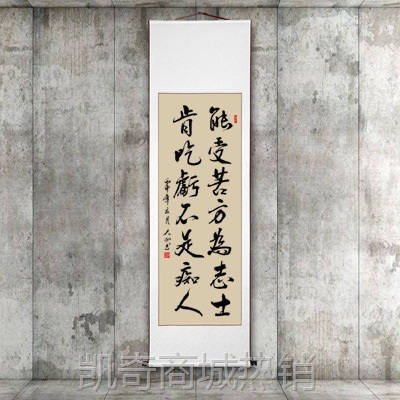 能受苦方為志士
肯吃虧不是痴人
凯奇商城热销